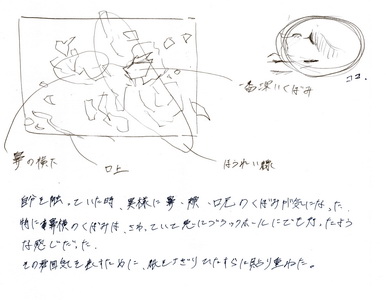 一番深いくぼみ
ココ.
鼻の横下
口上
ほうれい線
自分を触っていた時、異様に鼻・頬・口元のくぼみが気になった.
特に鼻横のくぼみは、さわっていて急にブラックホールにでもなったような感じだった.
その雰囲気を表すために、紙をちぎりひたすらに貼り重ねた。